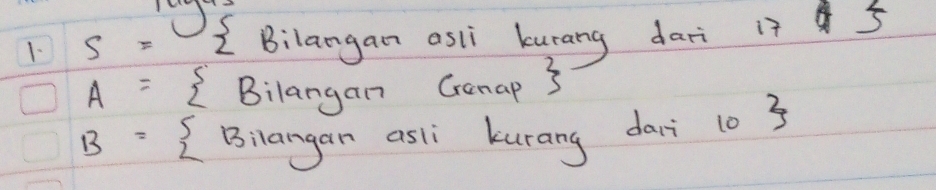 Tugas
1. S = { Bilangan asli kurang dari 17 }
A = { Bilangan Genap }
B = { Bilangan asli kurang dari 10 }